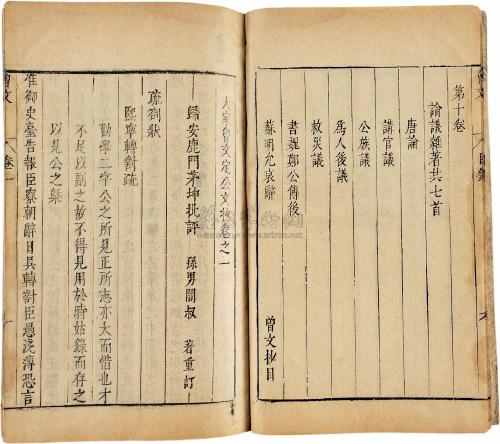 第十卷
論議雜著共七首
唐論
講官議
公族議
為人後議
救災議
書魏鄭公傳後
蘇明允哀辭
曾文抄目
曾文
卷一
大家曾文定公文抄卷之一
歸安鹿門茅坤批評
孫男闇叔 著重訂
疏劄狀
熙寧轉對疏
勸學二字公之所見正所志亦大而惜也才
不足以副之故不得見用於時姑錄而存之
以見公之槩
准御史臺告報臣寮朝辭日具轉對臣愚淺薄恐言